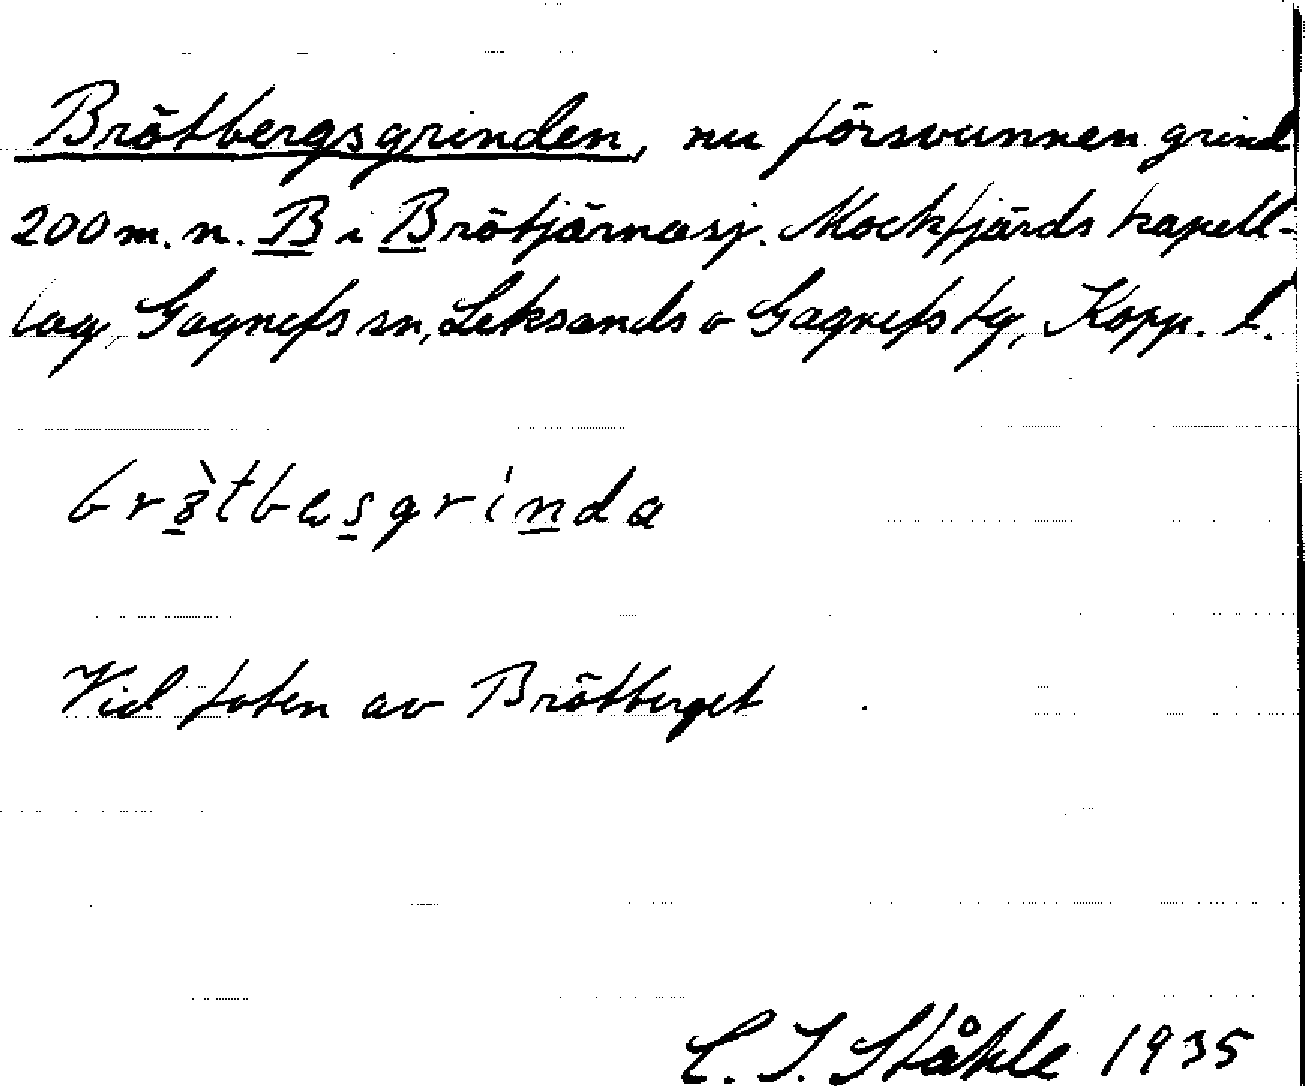 Brötbergsgrinden, nu försvunnen grind
200 m. n. B i Brötjärnasj. Mockfjärds kapell-
lag, Gagnefs sn, Leksands o Gagnefs tg, Kopp. l.
Vid foten av Brötberget
C. I. Ståhle 1935